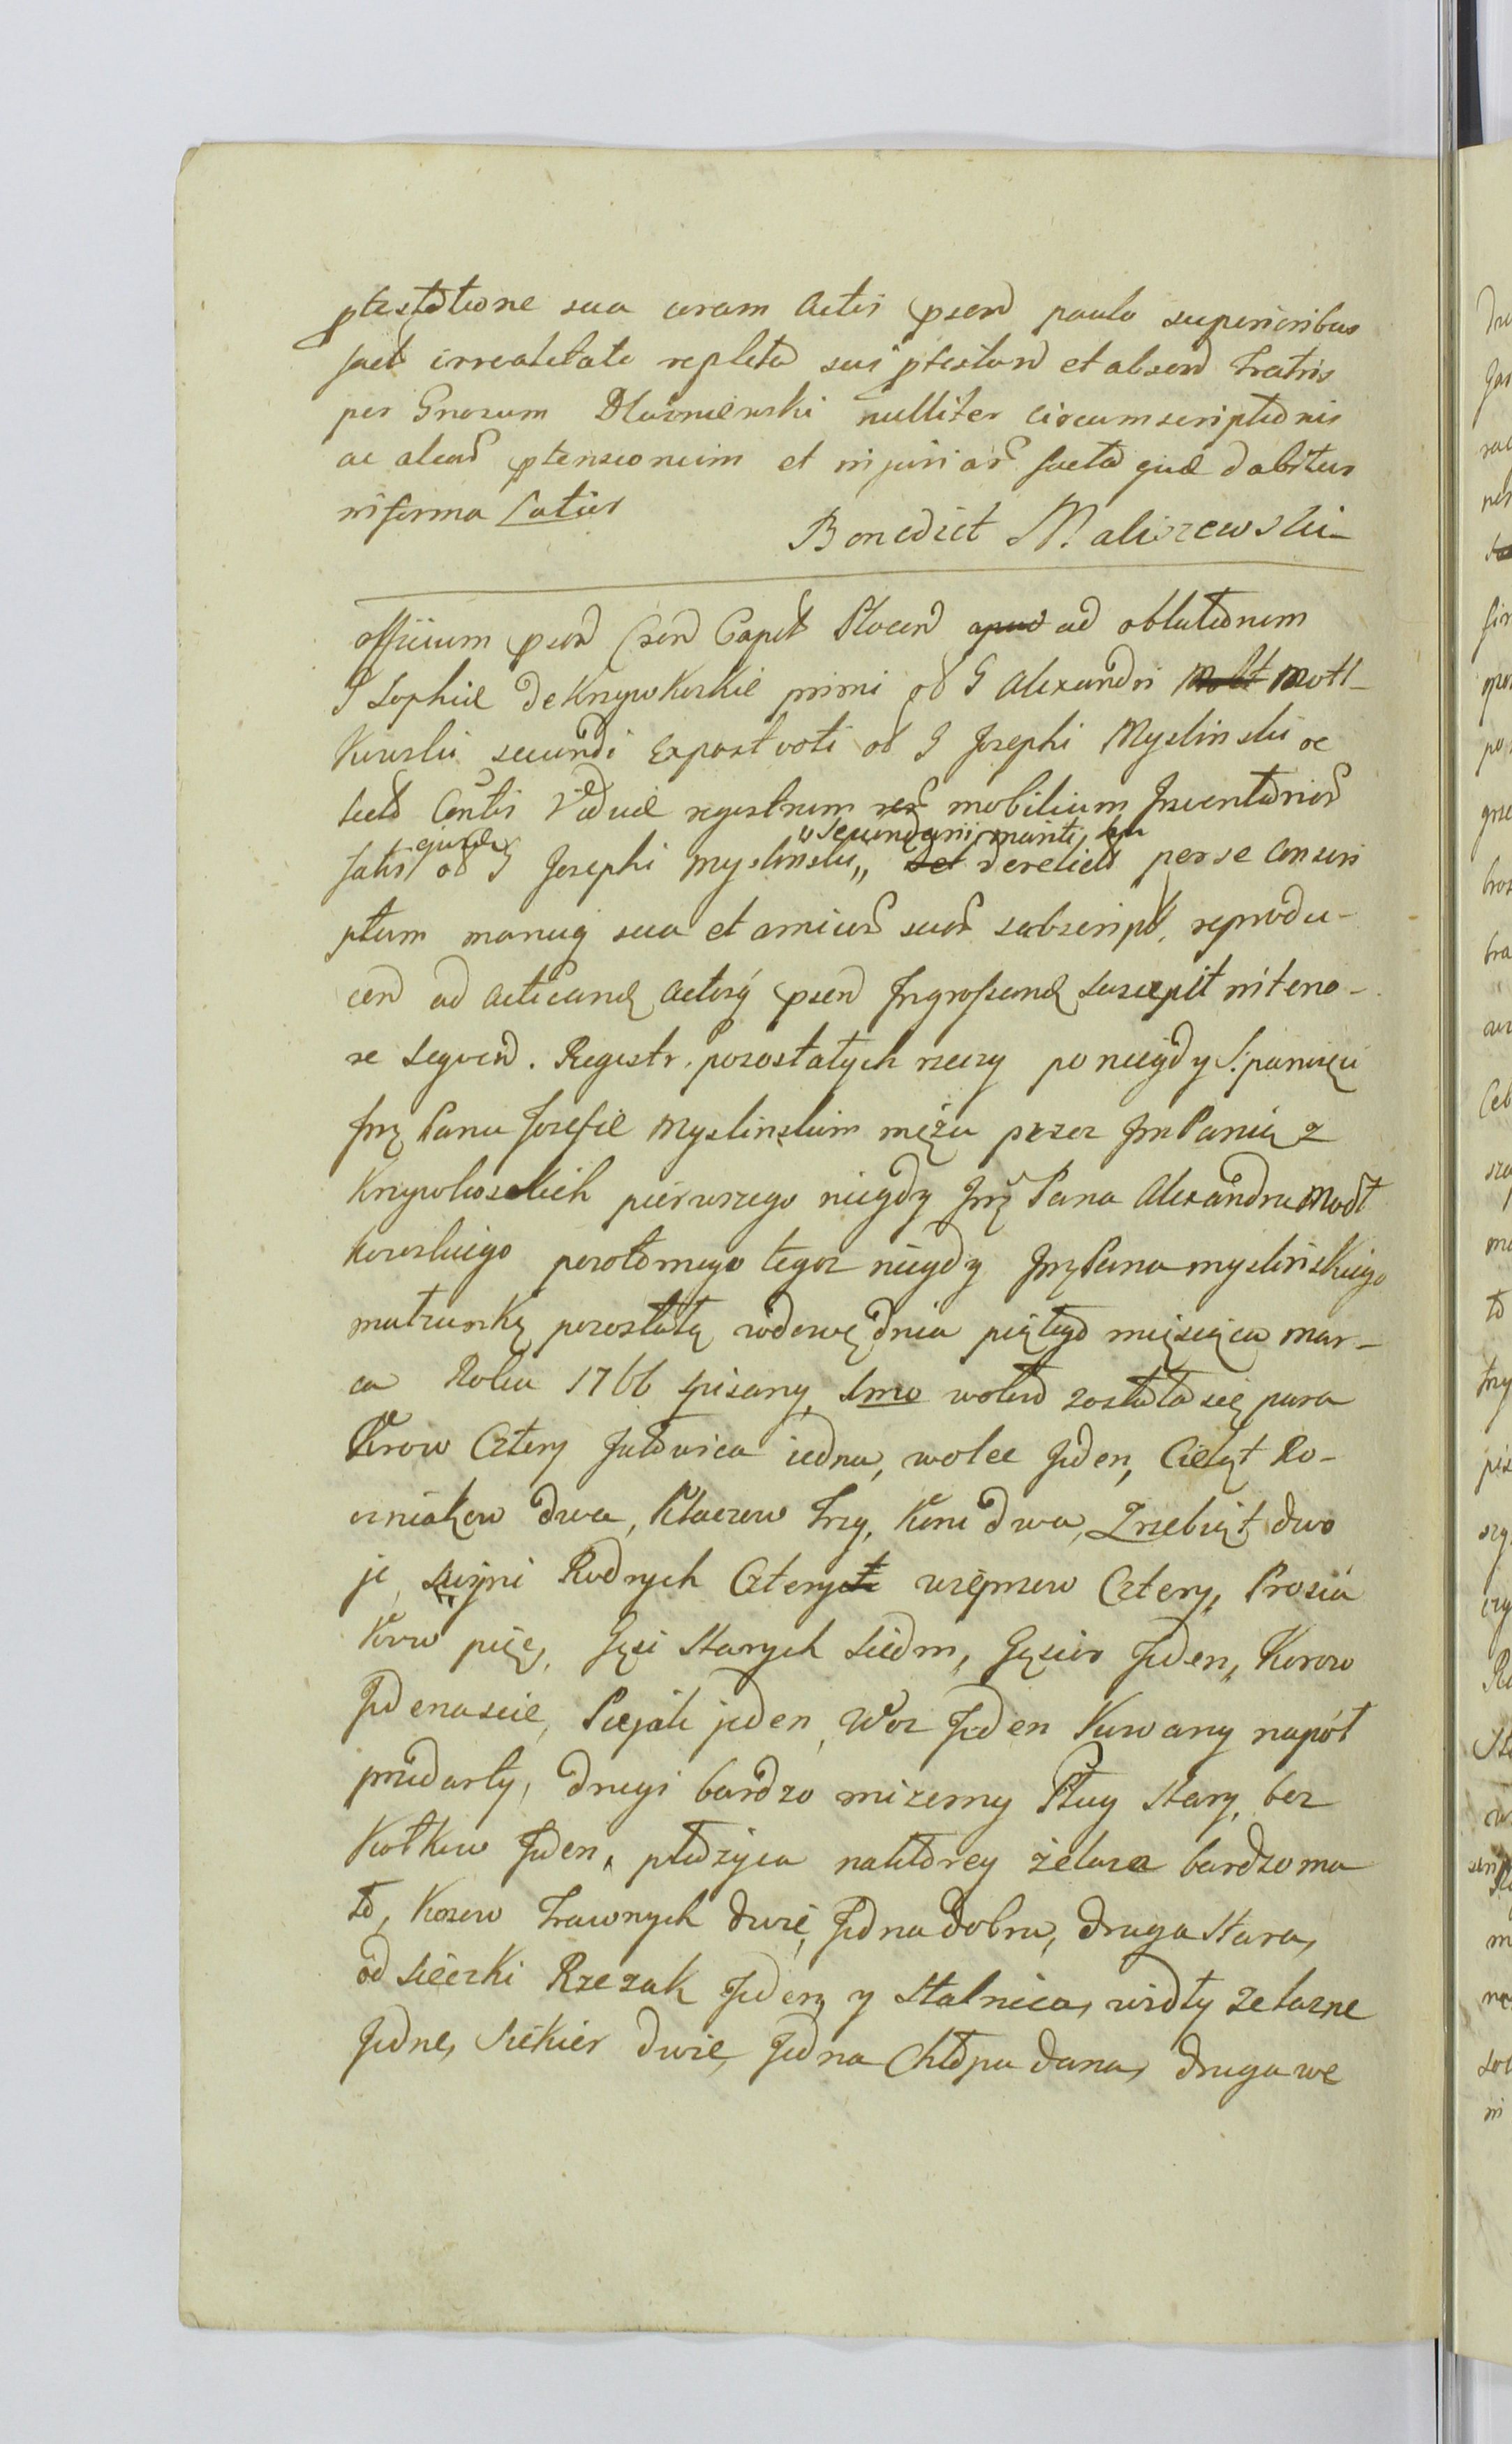 ptestatione sua coram Actis psend paulo superioribus
fact irrealitate repleta sui ptestand et absend Fratris
per Gnosum nulliter circumscriptionis
ac alias ptensionum et injuriar facta quæ dabitur
in forma Latius
Benedict Maliszewski
officium psend Csend Capit Plocen apud ad oblationem
G Sophiæ de Krzywkoskie primi od G Alexandri Molt Mott-
kowski secundi Expost voti od G Josephi Myslinski oc
sect Contis Viduæ regestrum rer mobilium Inventarior
fatis ejusdem od G Josephi Myslinski „ „secundarii mariti, sui Sel derelict per se conscri
ptum manuq sua et amicor suor subscript, reprodu-
cend ad acticand Actisq psend Ingrossand suscepit in teno-
re seqvend. Regestr. pozostałych rzeczy po niegdy S. pamięci
Jmę Panu Jozefie Myslinskim mężu przez Jm Panią z
Krzywkoskich pierwszego niegdy Jmę Pana Alexandra Modt
kowskiego powtornego tegoz niegdy Jmę Pana Myslinskiego
matzunkę pozostałą wdowę dnia piątego miesiąca Mar-
ca Roku 1766 spisany, Imo wołow zostało się para
Krow Cztery Jałowica iedna, wolec Jeden, Cieląt Ro-
czniakow dwa, Klaczow Trzy, Koni dwa, Zrzebiąt dwo
je, Swyni Rodnych Cztery wieprzow Cztery, Prosia
Kow pięc, Gęsi starych siedm, Gęsior Jeden, Kurow
Jedenascie, Piejak jeden, Woz Jeden Kuwany napół
przedarty, drugi bardzo mizerny Pług stary, bez
Kołkow Jeden, płużyca naktorey żelaza bardzo ma
ło, Kosow Trawnych dwie, Jedna dobra, druga stara,
od sieczki Rzezak Jeden y stalnica, widły zelazne
Jedne, Siekier dwie, Jedna Chłopu dana, druga we